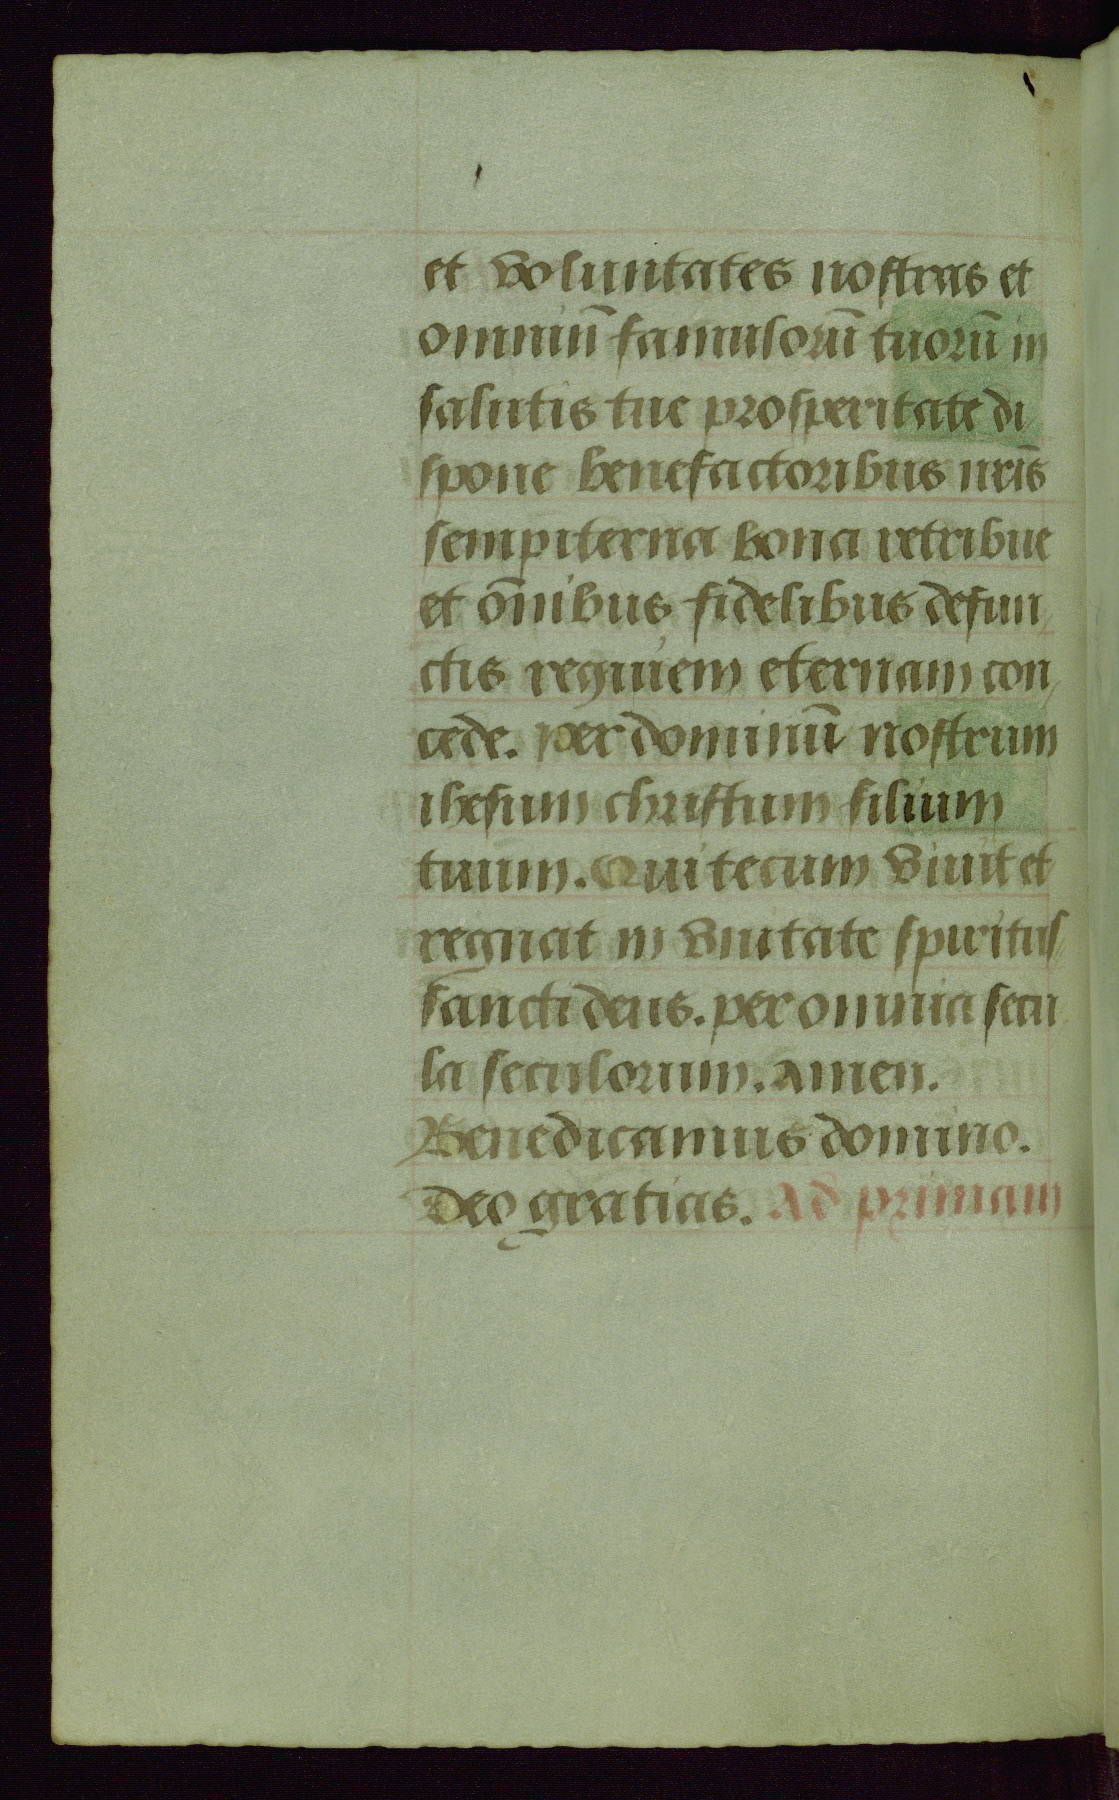 et voluntates nostras et
omniū famulorū tuorū in
salutis tue prosperitate di
spone benefactoribus nr̄is
sempiterna bona retribue
et om̄ibus fidelibus defun
ctis requiem eternam con
cede. per dominū nostrum
ihesum christum filium
tuum. Qui tecum viuit et
regnat in vnitate spiritus
sancti deus. per omnia secu
la seculorum. amen.
Benedicamus domino.
deo gratias. Ad primam